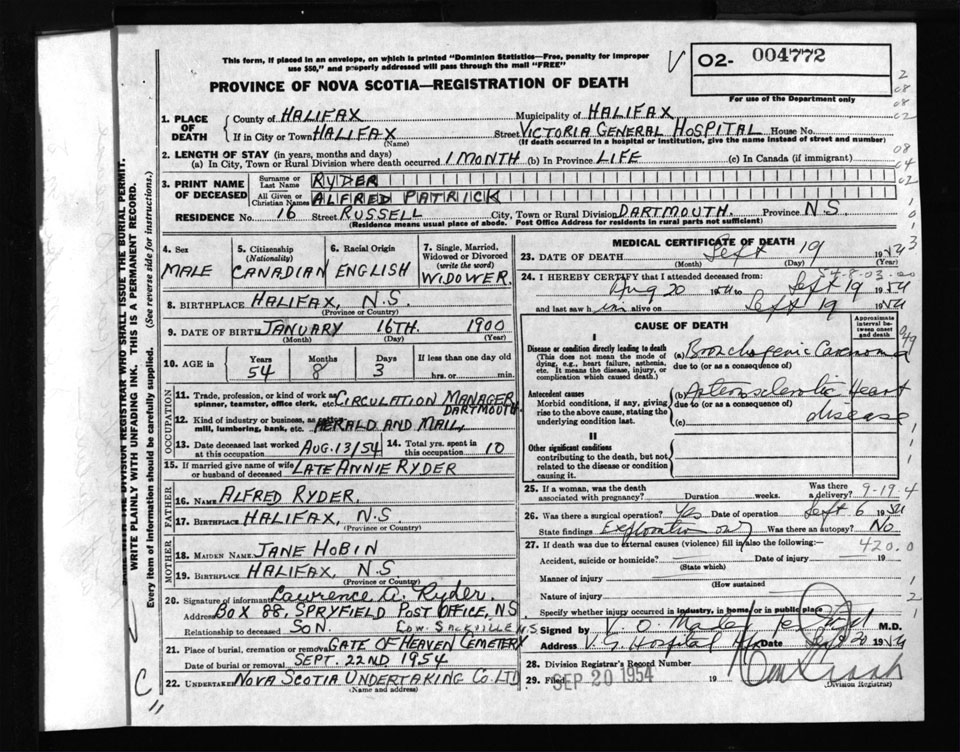 This form, if placed in an envelope, on which is printed "Dominion Statistics—Free, penalty for improper
use $50," and properly addressed will pass through the mail "FREE"
PROVINCE OF NOVA SCOTIA—REGISTRATION OF DEATH
V
O2- 004772
For use of the Department only
1. PLACE OF DEATH
County of HALIFAX Municipality of HALIFAX
If in City or Town HALIFAX Street VICTORIA GENERAL HOSPITAL House No.
(Name) (If death occurred in a hospital or institution, give the name instead of street and number)
2. LENGTH OF STAY (in years, months and days)
(a) In City, Town or Rural Division where death occurred 1 MONTH (b) In Province LIFE (c) In Canada (if immigrant)
3. PRINT NAME OF DECEASED
Surname or Last Name RYDER
All Given or Christian Names ALFRED PATRICK
RESIDENCE No. 16 Street RUSSELL City, Town or Rural Division DARTMOUTH. Province N.S.
(Residence means usual place of abode. Post Office Address for residents in rural parts not sufficient)
4. Sex MALE
5. Citizenship (Nationality) CANADIAN
6. Racial Origin ENGLISH
7. Single, Married, Widowed or Divorced (write the word) WIDOWER.
8. BIRTHPLACE HALIFAX, N.S.
(Province or Country)
9. DATE OF BIRTH JANUARY 16TH. 1900
(Month) (Day) (Year)
10. AGE in Years 54 Months 8 Days 3 If less than one day old hrs. or min.
OCCUPATION
11. Trade, profession, or kind of work as spinner, teamster, office clerk, etc. CIRCULATION MANAGER
DARTMOUTH
12. Kind of industry or business, as mill, lumbering, bank, etc. HERALD AND MAIL,
13. Date deceased last worked at this occupation AUG. 13/54 14. Total yrs. spent in this occupation 10
15. If married give name of wife or husband of deceased LATE ANNIE RYDER
FATHER
16. NAME ALFRED RYDER.
17. BIRTHPLACE HALIFAX, N.S.
(Province or Country)
MOTHER
18. MAIDEN NAME JANE HOBIN
19. BIRTHPLACE HALIFAX, N.S
(Province or Country)
20. Signature of informant Lawrence A. Ryder.
Address BOX 88, SPRYFIELD POST OFFICE, NS
Relationship to deceased SON. LOW. SACKVILLE N.S
21. Place of burial, cremation or removal GATE OF HEAVEN CEMETERY
Date of burial or removal SEPT. 22ND 1954
22. UNDERTAKER NOVA SCOTIA UNDERTAKING CO. LTD
(Name and address)
MEDICAL CERTIFICATE OF DEATH
23. DATE OF DEATH Sept 19 19
(Month) (Day) (Year)
24. I HEREBY CERTIFY that I attended deceased from:
Aug 20 1954 to Sept 19 1954
and last saw h im alive on Sept 19 1954
CAUSE OF DEATH
Approximate interval between onset and death
I
Disease or condition directly leading to death
(This does not mean the mode of dying, e.g., heart failure, asthenia, etc. It means the disease, injury, or complication which caused death.)
(a) Bronchogenic Carcinoma
due to (or as a consequence of)
Antecedent causes
Morbid conditions, if any, giving rise to the above cause, stating the underlying condition last.
(b) Arteriosclerotic Heart
due to (or as a consequence of) disease
(c)
II
Other significant conditions
contributing to the death, but not related to the disease or condition causing it.
25. If a woman, was the death associated with pregnancy? Duration weeks. Was there a delivery? 9-19-4
26. Was there a surgical operation? Yes Date of operation Sept 6 1954
State findings Exploration only Was there an autopsy? No
27. If death was due to external causes (violence) fill in also the following:— 420.0
Accident, suicide or homicide? Date of injury 19
(State which)
Manner of injury
(How sustained)
Nature of injury
Specify whether injury occurred in industry, in home or in public place
Signed by V. O. M.D.
Address V. G. Hospital Hfx Date Sept 20 1954
28. Division Registrar's Record Number
29. Filed SEP 20 1954 19
(Division Registrar)
WRITE PLAINLY WITH UNFADING INK. THIS IS A PERMANENT RECORD.
Every item of information should be carefully supplied. (See reverse side for instructions.)
C
11